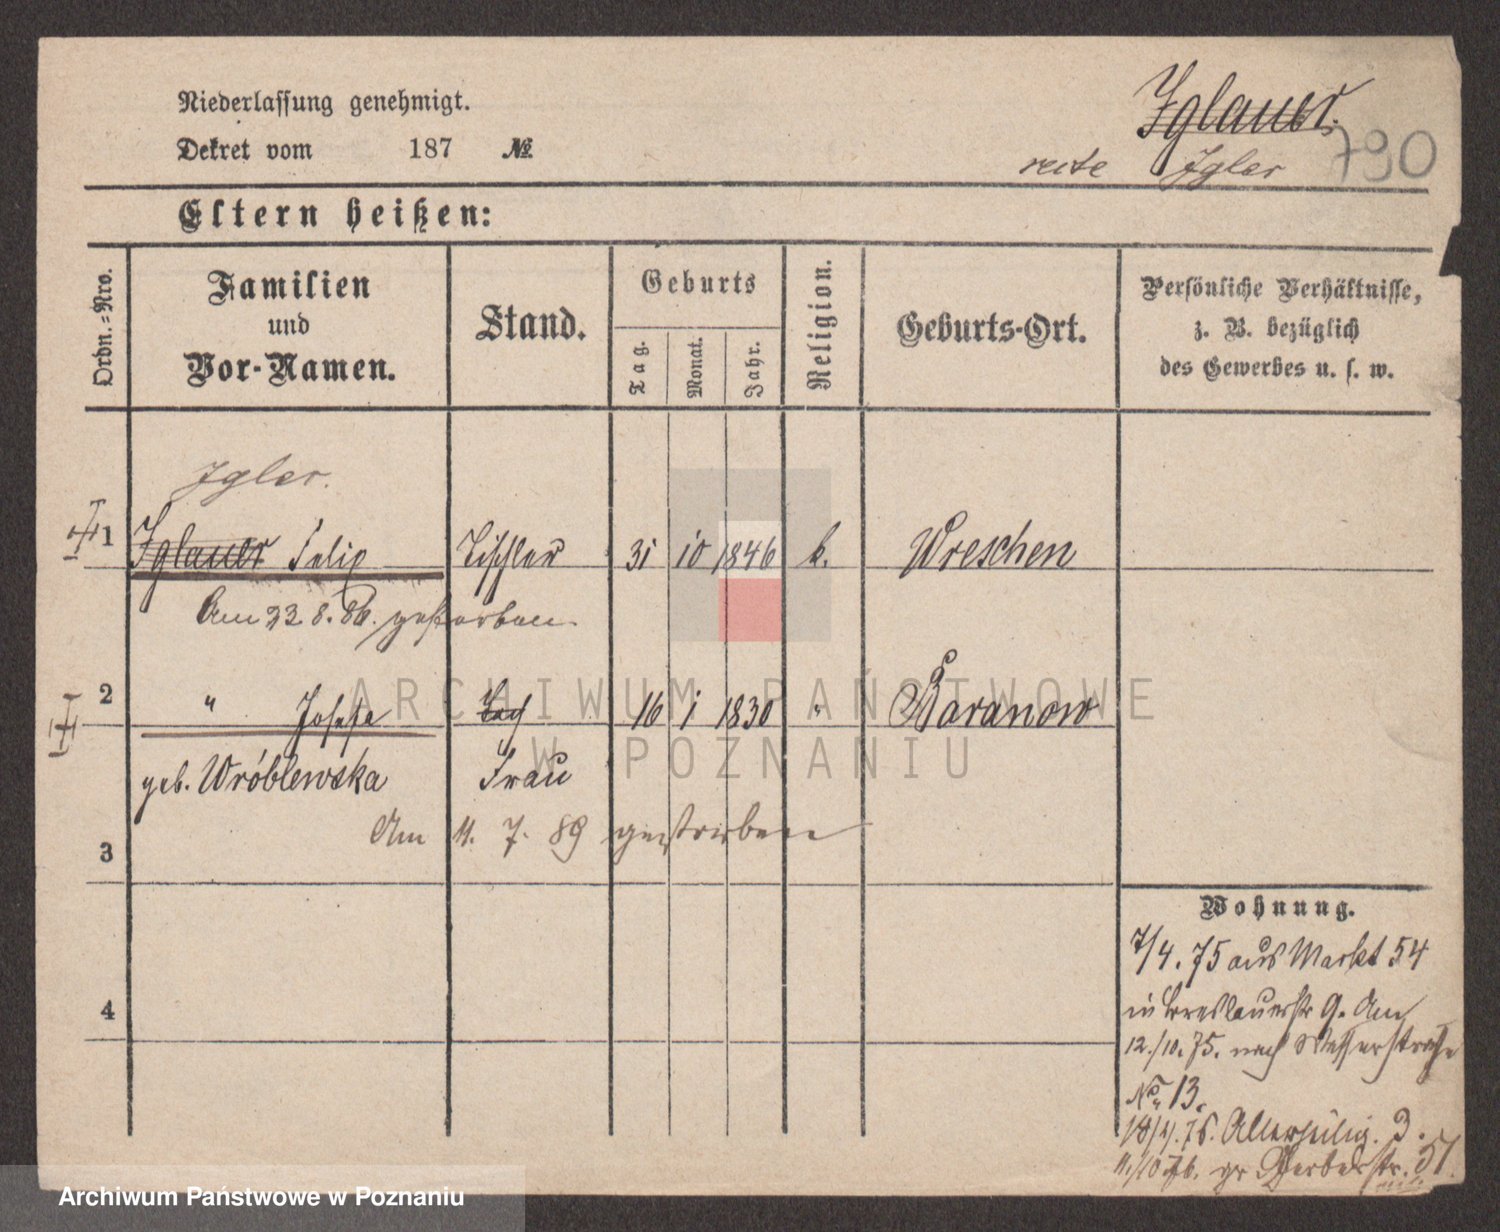 Niederlassung genehmigt.
Iglauer.
Dekret vom 187 №
recte Igler 790
Eltern heißen:
Ordn.=Nro.
Familien
und
Vor-Namen.
Stand.
Geburts
Tag.
Monat.
Jahr.
Religion.
Geburts-Ort.
Persönliche Verhältnisse,
z. B. bezüglich
des Gewerbes u. s. w.
Igler.
1 Iglauer Felix Tischler 31 10 1846 k. Wreschen
Am 23.8.86. gestorben
2 " Josefa Frau 16 1 1830 " Baranow
geb. Wróblewska
Am 11. 7. 89 gestorben
3
4
Wohnung.
7/4. 75 aus Markt 54
in Breslauerstr 9. Am
12./10. 75. nach Wasserstraße
No. 13.
Allerheilig. 3.
11./10 76. gr Gerberstr. 51
ARCHIWUM PAŃSTWOWE
W POZNANIU
Archiwum Państwowe w Poznaniu